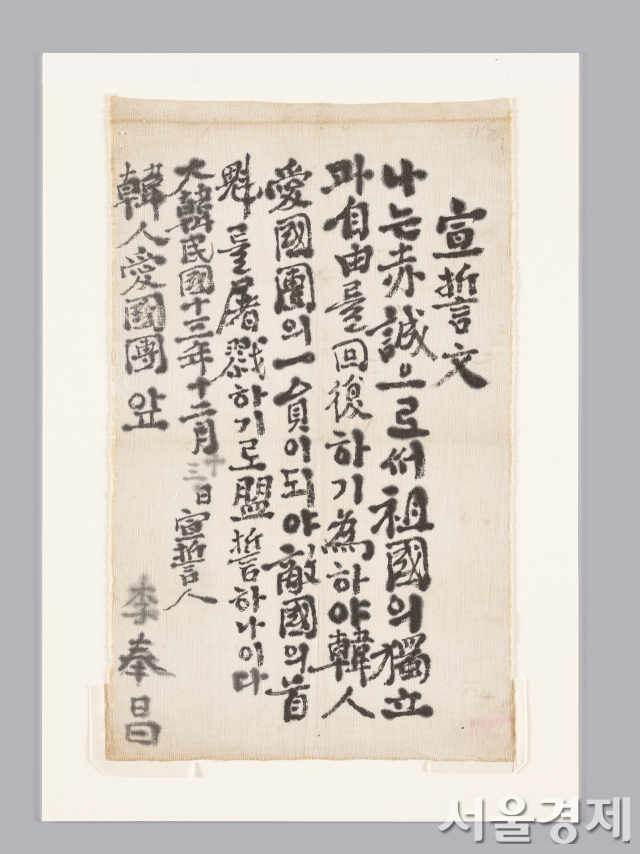 宣誓文
나는赤誠으로써祖國의獨立
과自由를回復하기爲하야韓人
愛國團의一員이되야敵國의首
魁를屠戮하기로盟誓하나이다
大韓民國十三年十二月十三日 宣誓人
韓人愛國團 앞 李奉昌
서울경제